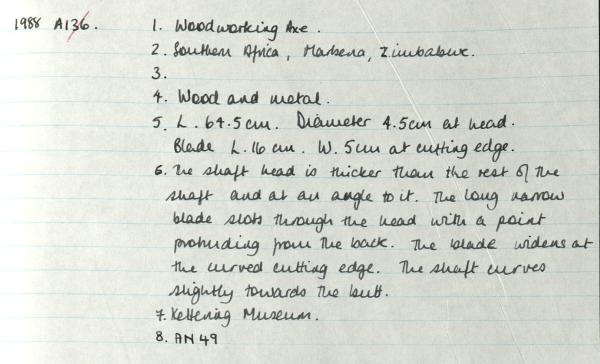 1988 A136. 1. Woodworking Axe.
2. Southern Africa, Marbena, Zimbabwe.
3.
4. Wood and metal.
5. L. 64.5cm. Diameter 4.5cm at head.
Blade L. 16 cm. W. 5cm at cutting edge.
6. The shaft head is thicker than the rest of the
shaft and at an angle to it. The long narrow
blade slots through the head with a point
protruding from the back. The blade widens at
the curved cutting edge. The shaft curves
slightly towards the butt.
7. Kettering Museum.
8. AN 49